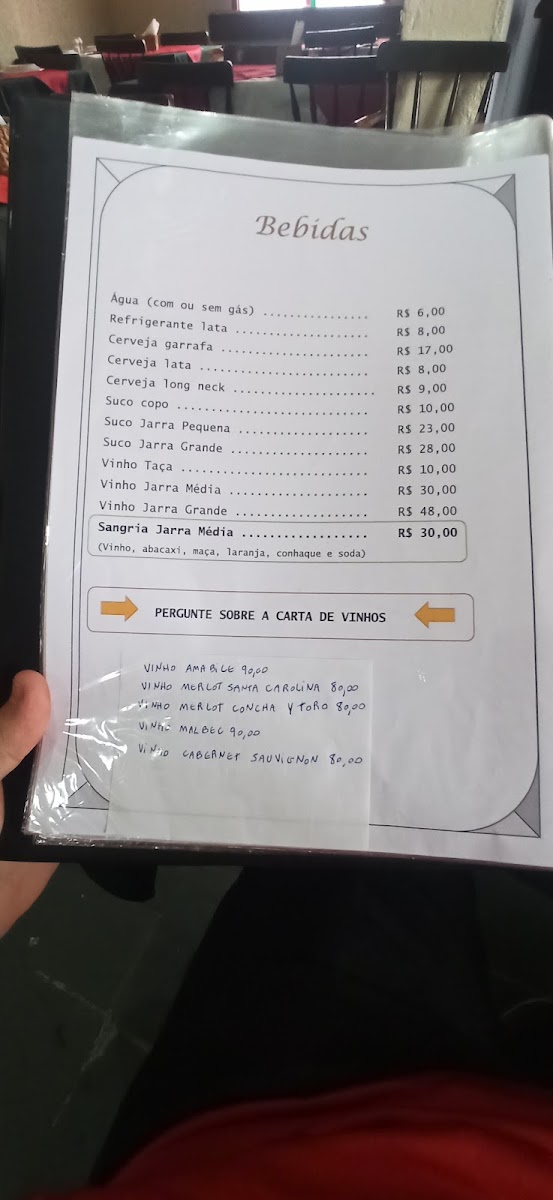 Bebidas
Água (com ou sem gás) ................ R$ 6,00
Refrigerante lata .................... R$ 8,00
Cerveja garrafa ...................... R$ 17,00
Cerveja lata ......................... R$ 8,00
Cerveja long neck ..................... R$ 9,00
Suco copo ............................. R$ 10,00
Suco Jarra Pequena .................... R$ 23,00
Suco Jarra Grande ..................... R$ 28,00
Vinho Taça ............................ R$ 10,00
Vinho Jarra Média ..................... R$ 30,00
Vinho Jarra Grande .................... R$ 48,00
Sangria Jarra Média .................. R$ 30,00
(Vinho, abacaxi, maça, laranja, conhaque e soda)
PERGUNTE SOBRE A CARTA DE VINHOS
VINHO AMABILE 90,00
VINHO MERLOT SANTA CAROLINA 80,00
VINHO MERLOT CONCHA Y TORO 80,00
VINHO MALBEC 90,00
VINHO CABERNET SAUVIGNON 80,00